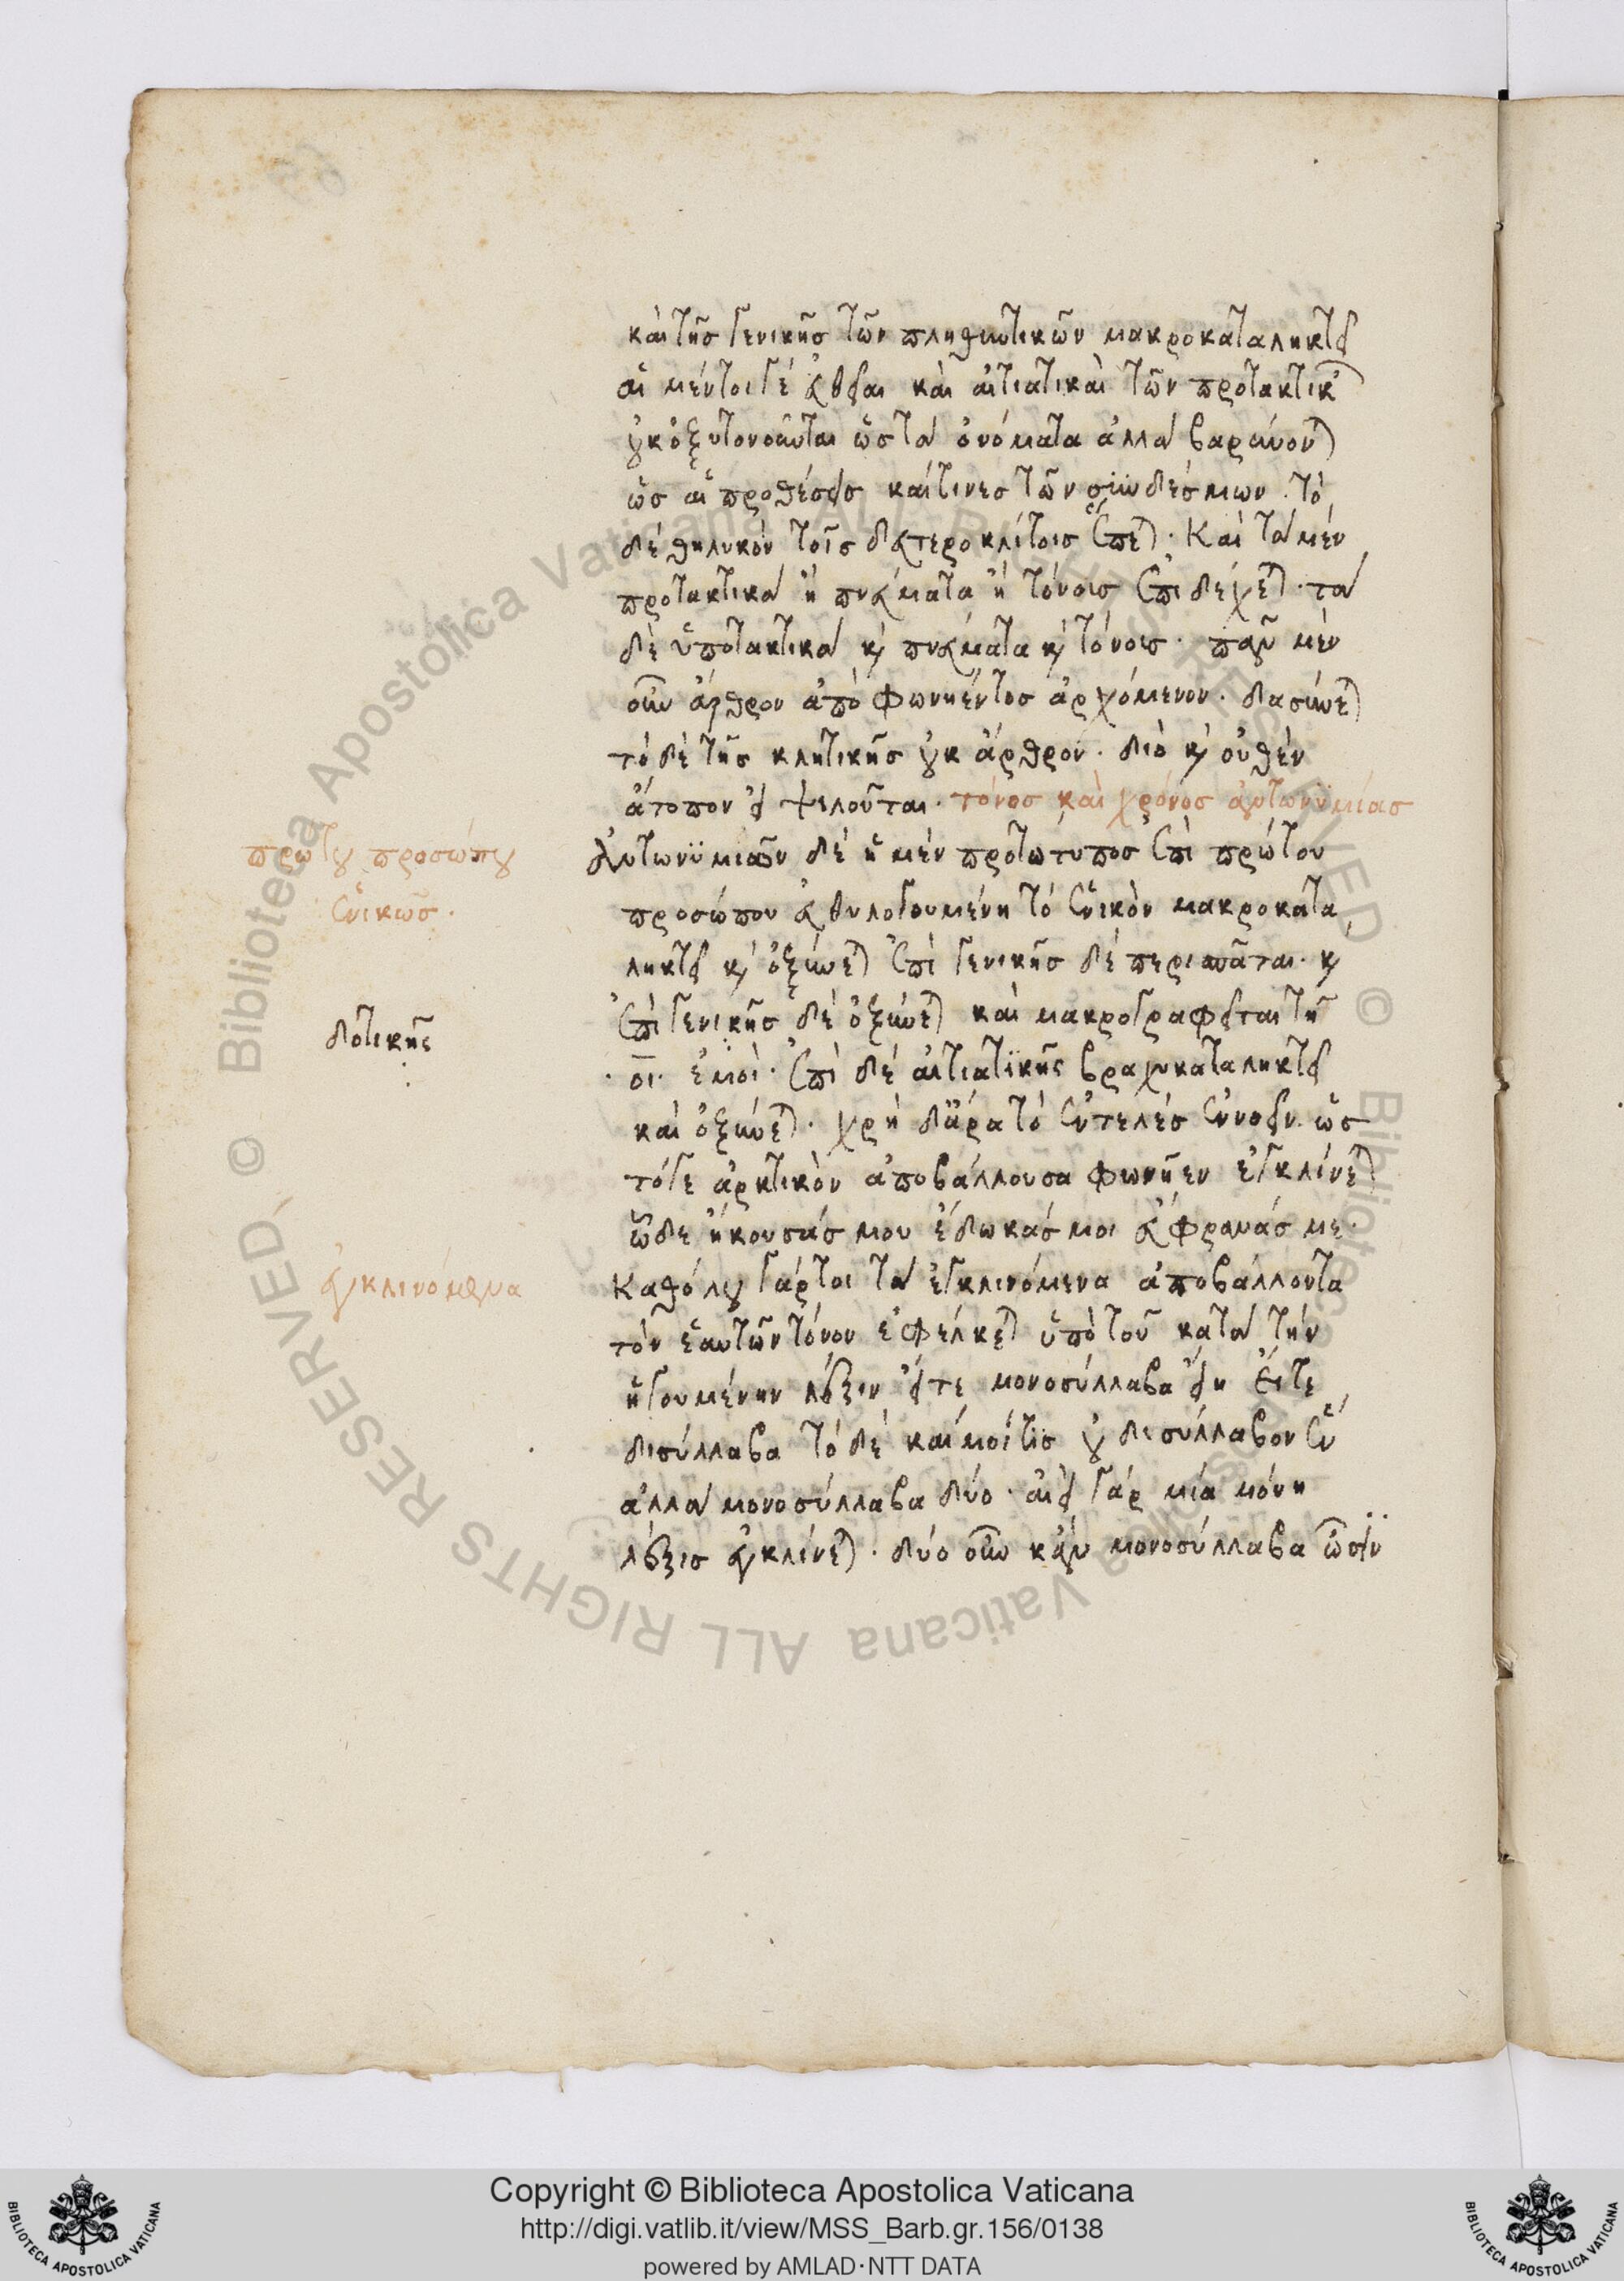 καὶ τῆς γενικῆς τῶν πληθυντικῶν μακροκαταληκτεῖ
αἱ μέντοιγε εὐθεῖαι καὶ αἰτιατικαὶ τῶν προτακτικῶν
οὐκ ὀξυτονοῦνται ὡς τὰ ὀνόματα ἀλλὰ βαρύνονται
ὡς αἱ προθέσεις καί τινες τῶν συνδέσμων. τὸ
δὲ θηλυκὸν τοῖς δευτεροκλίτοις ἕπεται. Καὶ τὰ μὲν
προτακτικὰ ἢ πνεύματα ἢ τόνους ἐπιδέχεται. τὰ
δὲ ὑποτακτικὰ καὶ πνεύματα καὶ τόνους. πᾶν μὲν
οὖν ἄρθρον ἀπὸ φωνήεντος ἀρχόμενον. δασύνεται
τὸ δὲ τῆς κλητικῆς οὐκ ἄρθρον. διὸ καὶ οὐθὲν
ἄτοπον εἰ ψιλοῦται. τόνος καὶ χρόνος ἀντωνυμίας
πρώτου προσώπου
ἑνικῶς.
Ἀντωνυμιῶν δὲ ἡ μὲν πρωτότυπος ἐπὶ πρώτου
προσώπου εὐθυλογουμένη τὸ ἑνικὸν μακροκατα
ληκτεῖ καὶ ὀξύνεται ἐπὶ γενικῆς δὲ περισπᾶται. καὶ
δοτικῆς
ἐπὶ γενικῆς δὲ ὀξύνεται καὶ μακρογραφεῖται τῇ
·οι· ἐμοὶ. ἐπὶ δὲ αἰτιατικῆς βραχυκαταληκτεῖ
καὶ ὀξύνεται. χρὴ δ᾽ ἄρα τὸ ἐντελὲς ἐννοεῖν ὡς
τόγε ἀρκτικὸν ἀποβάλλουσα φωνῆεν ἐγκλίνεται
ὧδε ἤκουσάς μου ἔδωκάς μοι εὔφρανάς με.
ἐγκλινόμενα
Καθόλου γάρτοι τὰ ἐγκλινόμενα ἀποβάλλοντα
τὸν ἑαυτῶν τόνον ἐφέλκεται ὑπὸ τοῦ κατὰ τὴν
ἡγουμένην λέξιν εἴτε μονοσύλλαβα εἴη εἴτε
δισύλλαβα τὸ δὲ καίμοίτις οὐ δισύλλαβον ἓν
ἀλλὰ μονοσύλλαβα δύο. ἀεὶ γὰρ μία μόνη
λέξις ἐγκλίνεται. δύο οὖν κἂν μονοσύλλαβα ὦσιν
Copyright © Biblioteca Apostolica Vaticana
http://digi.vatlib.it/view/MSS_Barb.gr.156/0138
powered by AMLAD·NTT DATA